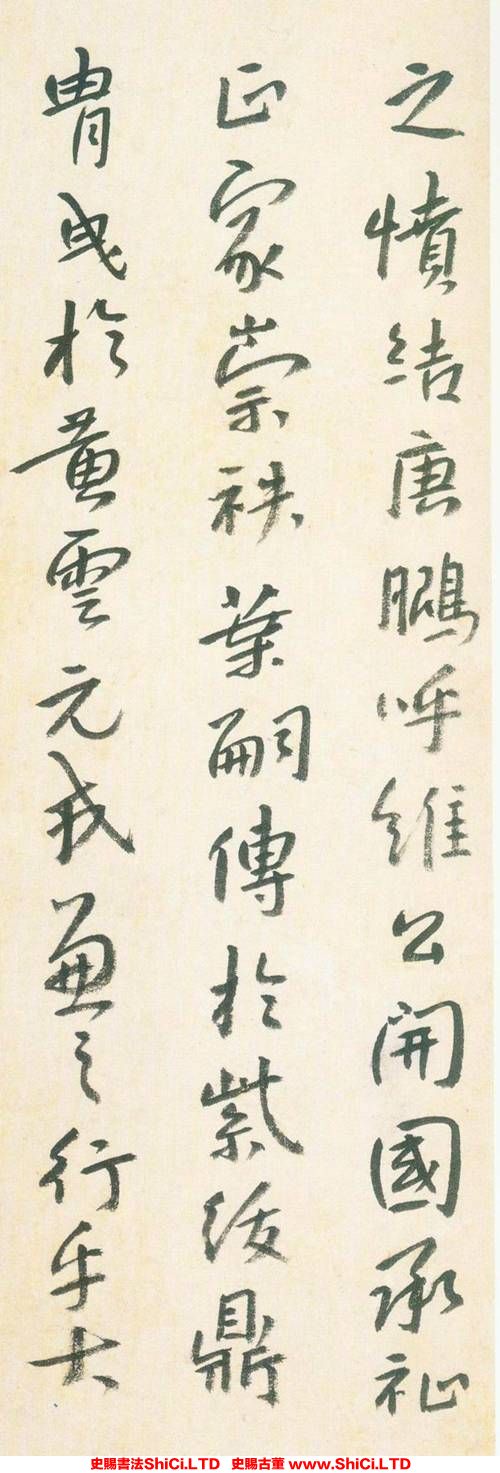 之憤結唐鵬呼維公開國承祉
正家崇袟葉嗣傳於紫綬鼎
胄曳於黃雲元戎之行乎大
史賜書法ShiCi.LTD 史賜古董 www.ShiCi.LTD